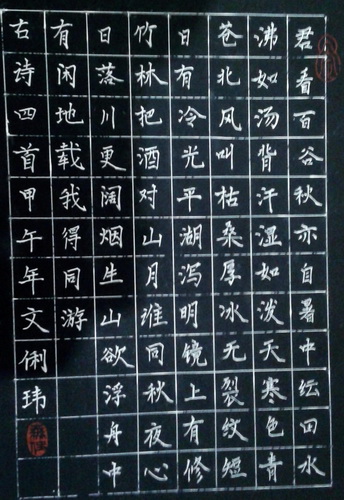 君看百谷秋亦自暑中纭田水
沸如汤背汗湿如泼天寒色青
苍北风叫枯桑厚冰无裂纹短
日有冷光平湖泻明镜上有修
竹林把酒对山月谁同秋夜心
日落川更阔烟生山欲浮舟中
有闲地载我得同游
古诗四首甲午年文俐玮